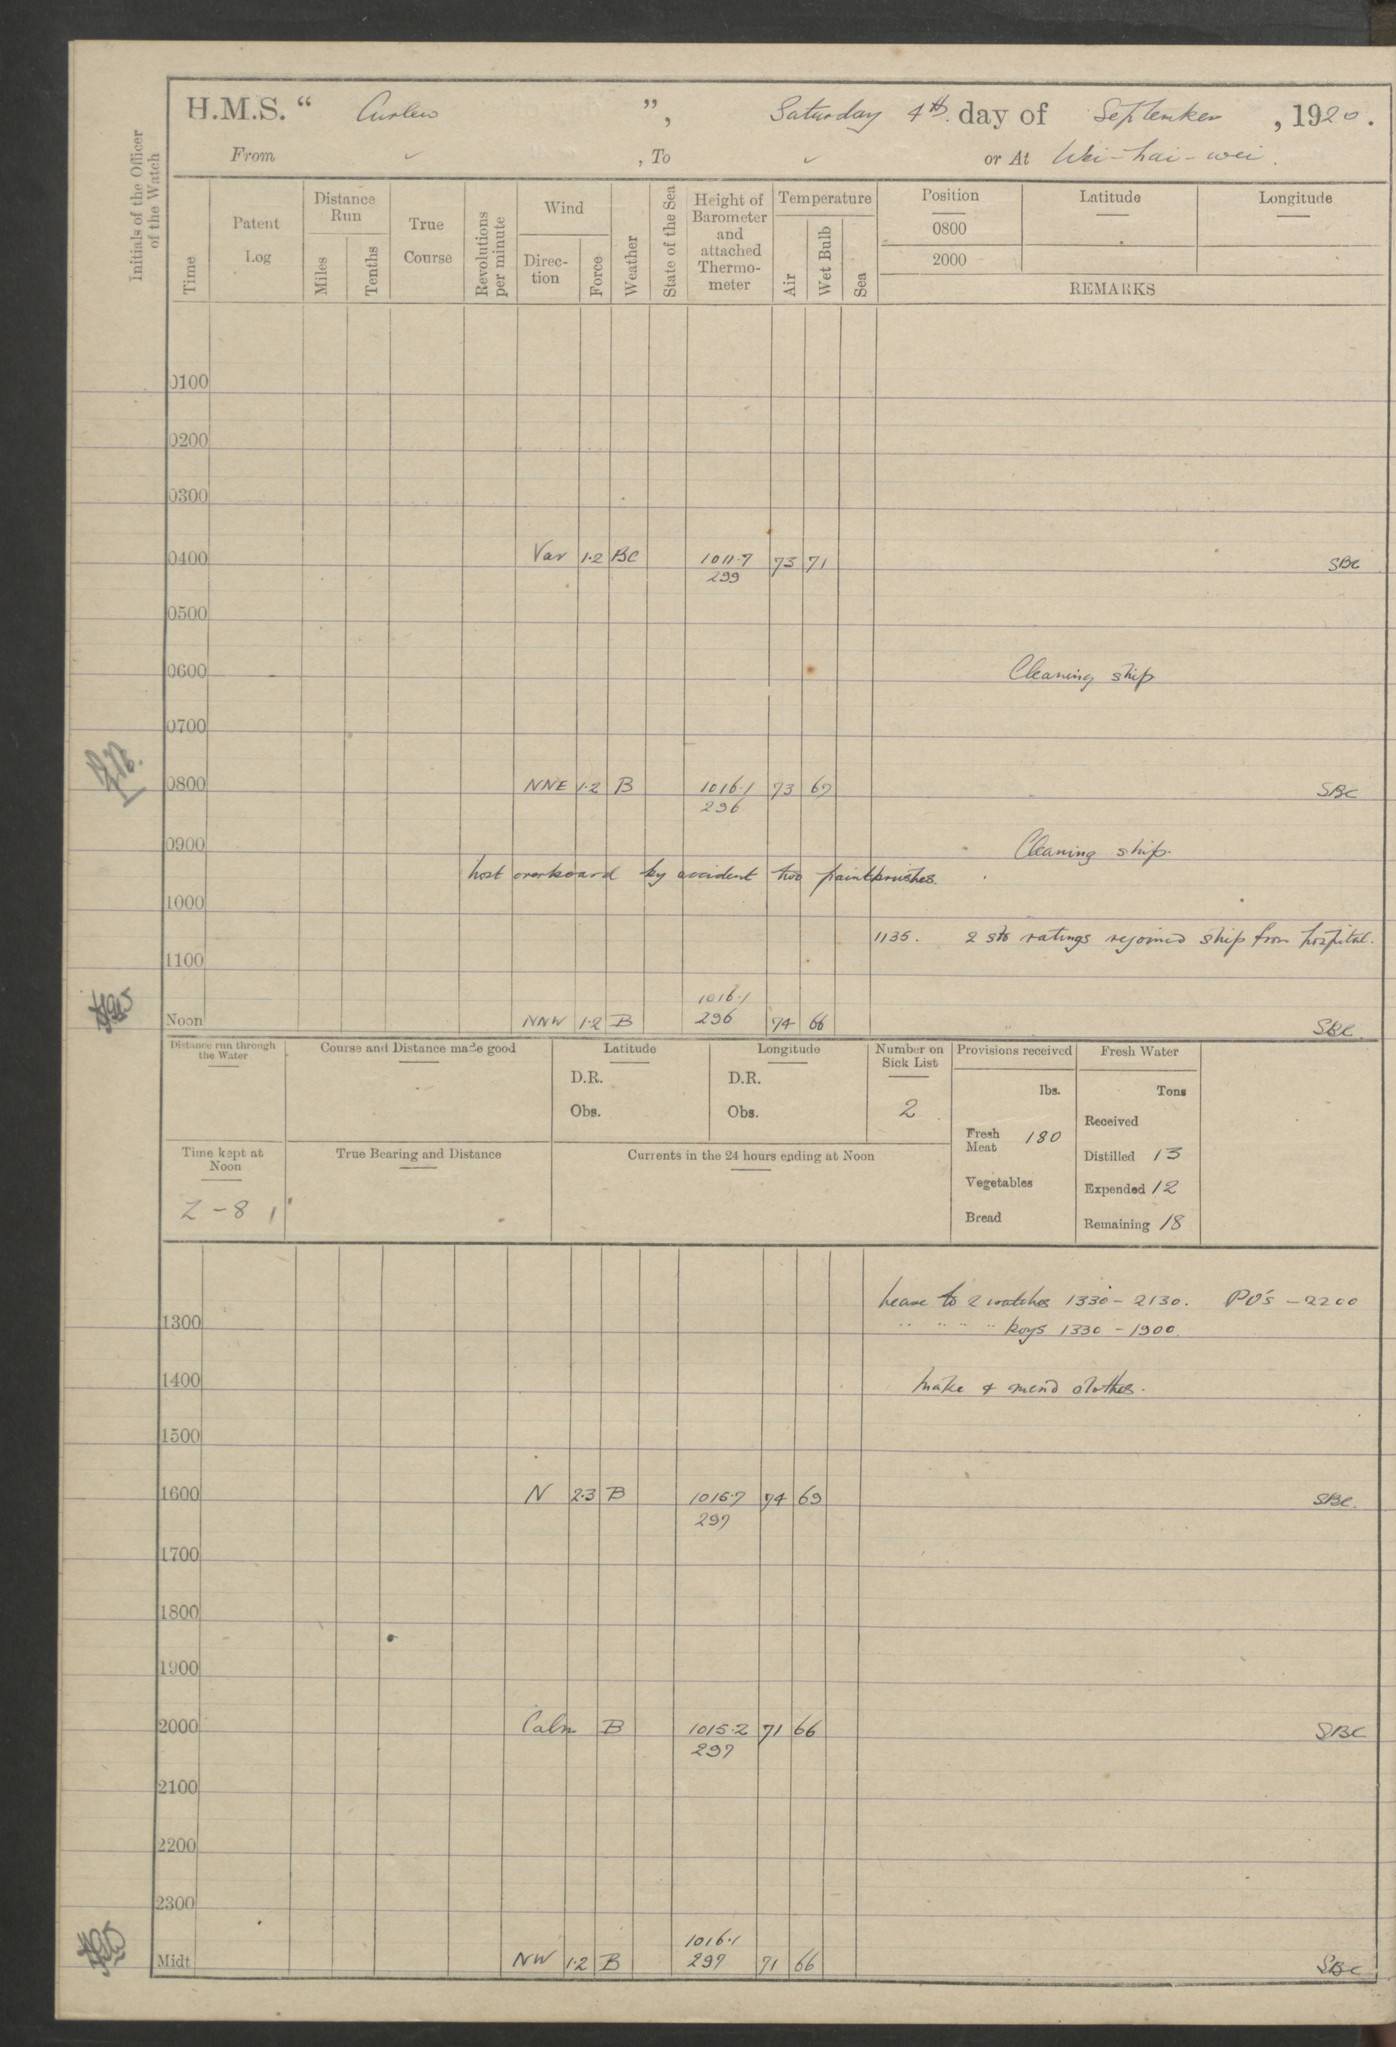 H.M.S. “ Curlew ”, Saturday 4th day of September, 1920.
From ✓, To ✓ or At Wei-hai-wei.
Initials of the Officer of the Watch
Time
Patent Log
Distance Run
Miles
Tenths
True Course
Revolutions per minute
Wind
Direc-tion
Force
Weather
State of the Sea
Height of Barometer and attached Thermo-meter
Temperature
Air
Wet Bulb
Sea
Position
Latitude
Longitude
0800
2000
REMARKS
0100
0200
0300
0400 Var 1·2 BC 1011·7 73 71 SBC
299
0500
0600 Cleaning ship
0700
0800 NNE 1·2 B 1016·1 73 67 SBC
296
0900 Cleaning ship.
Lost overboard by accident two paintbrushes.
1000
1135. 2 sto ratings rejoined ship from hospital.
1100
1016·1
Noon NNW 1·2 B 296 74 66 SBC.
Distance run through the Water
Course and Distance made good
Latitude
D.R.
Obs.
Longitude
D.R.
Obs.
Number on Sick List
2
Provisions received
lbs.
Fresh Meat 180
Vegetables
Bread
Fresh Water
Tons
Received
Distilled 13
Expended 12
Remaining 18
Time kept at Noon
Z -8
True Bearing and Distance
Currents in the 24 hours ending at Noon
Leave to 2 watches 1330 - 2130. PO's - 2200
1300 " " " " boys 1330 - 1900.
1400 Make & mend clothes.
1500
1600 N 2·3 B 1015·7 74 69 SBC.
297
1700
1800
1900
2000 Calm B 1015·2 71 66 SBC
297
2100
2200
2300
1016·1
Midt NW 1·2 B 297 71 66 SBC